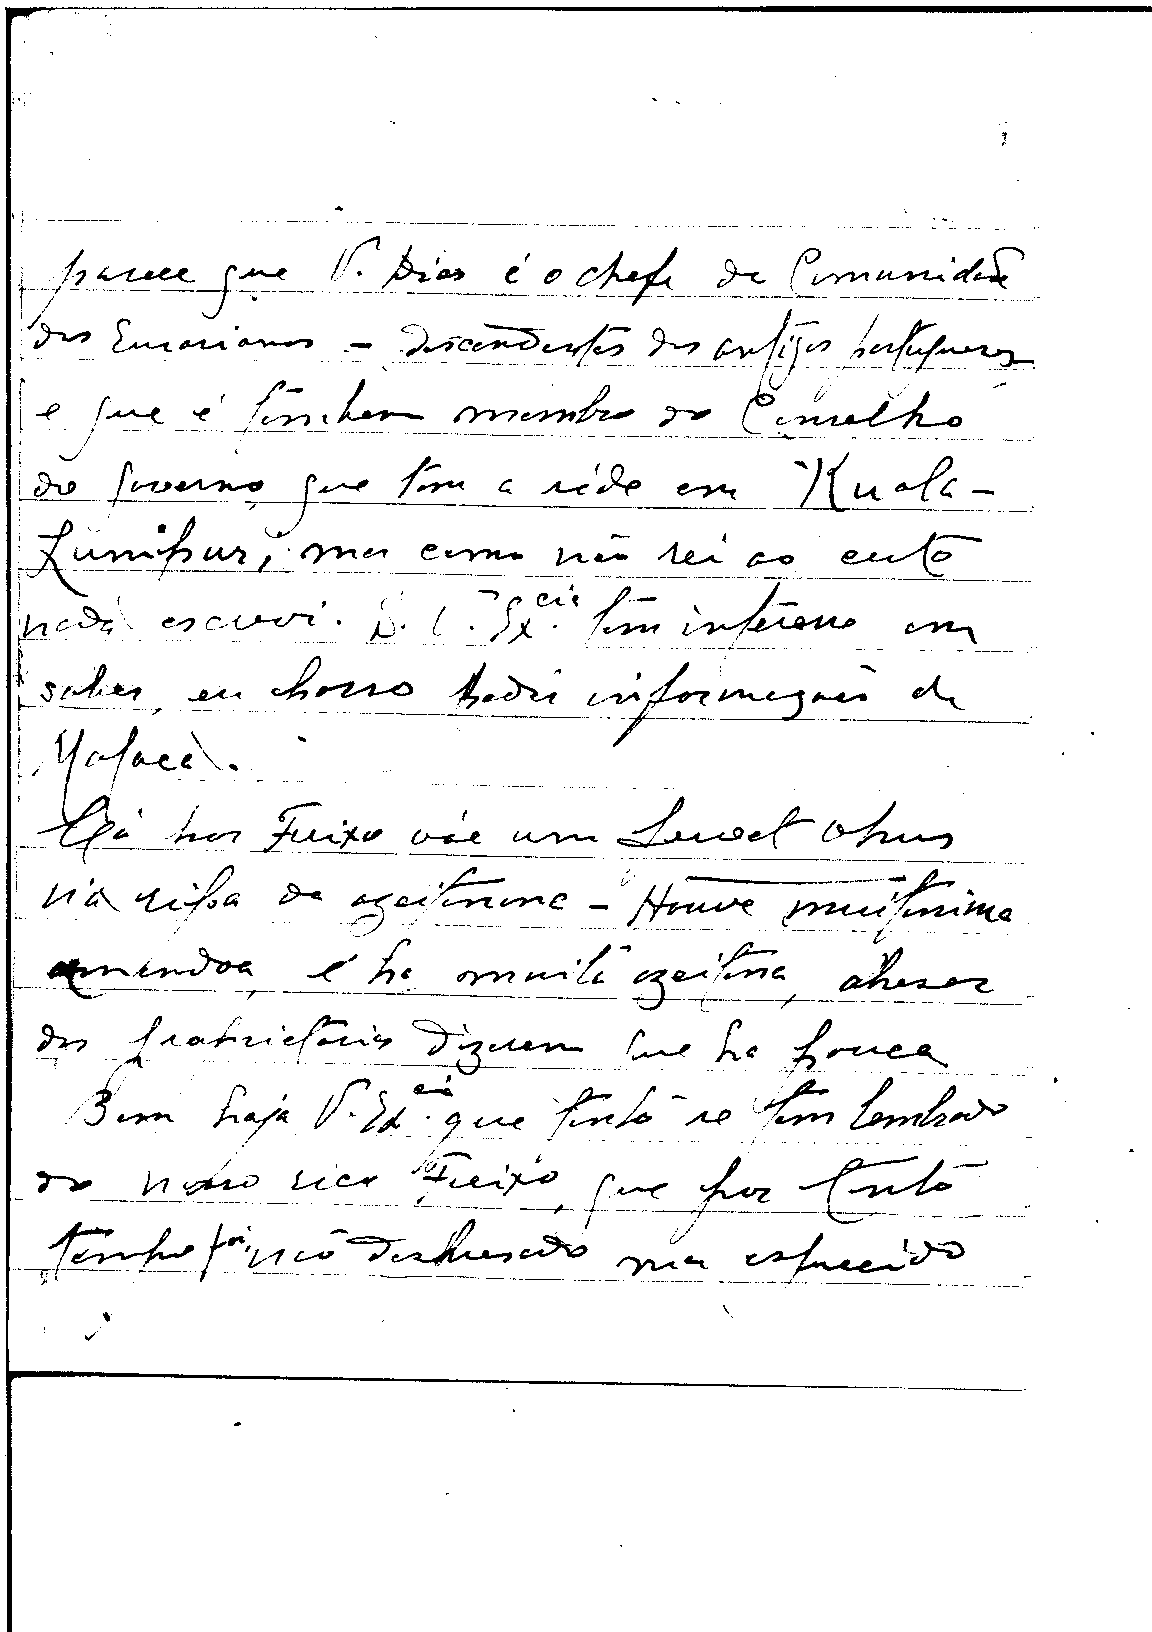 parece que V. Dias é o chefe da Comunidade
dos Eurasianos – descendentes dos antigos portugueses
e que é tambem membro do Conselho
do governo, que tem a séde em Kuala-
Lumpur, mas como não sei ao certo
nada escrevi. S. V. Ex.cia tem interesse em
saber, eu posso pedir informações de
Malaca.
Cá por Freixo vae um opus
na ripa da azeitona – Houve muitissima
amendoa, e ha muita azeitona, apesar
dos proprietarios dizerem que ha pouca
Bem haja V. Ex.cia que tanto se tem lembrado
do nosso rico Freixo, que por tanto
tempo foi, não desprezado mas esquecido